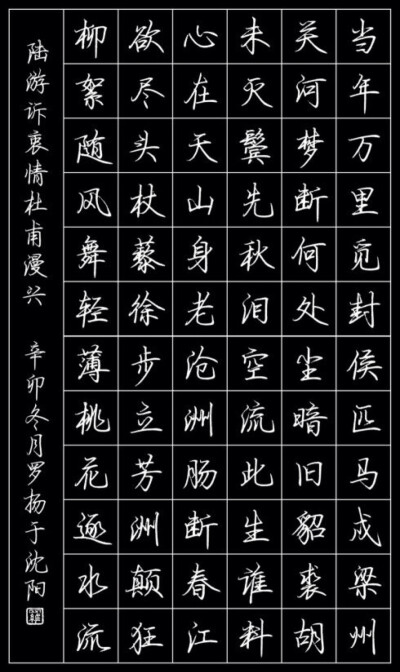 当年万里觅封侯匹马戍梁州
关河梦断何处尘暗旧貂裘胡
未灭鬓先秋泪空流此生谁料
心在天山身老沧洲肠断春江
欲尽头杖藜徐步立芳洲颠狂
柳絮随风舞轻薄桃花逐水流
陆游诉衷情杜甫漫兴 辛卯冬月罗扬于沈阳